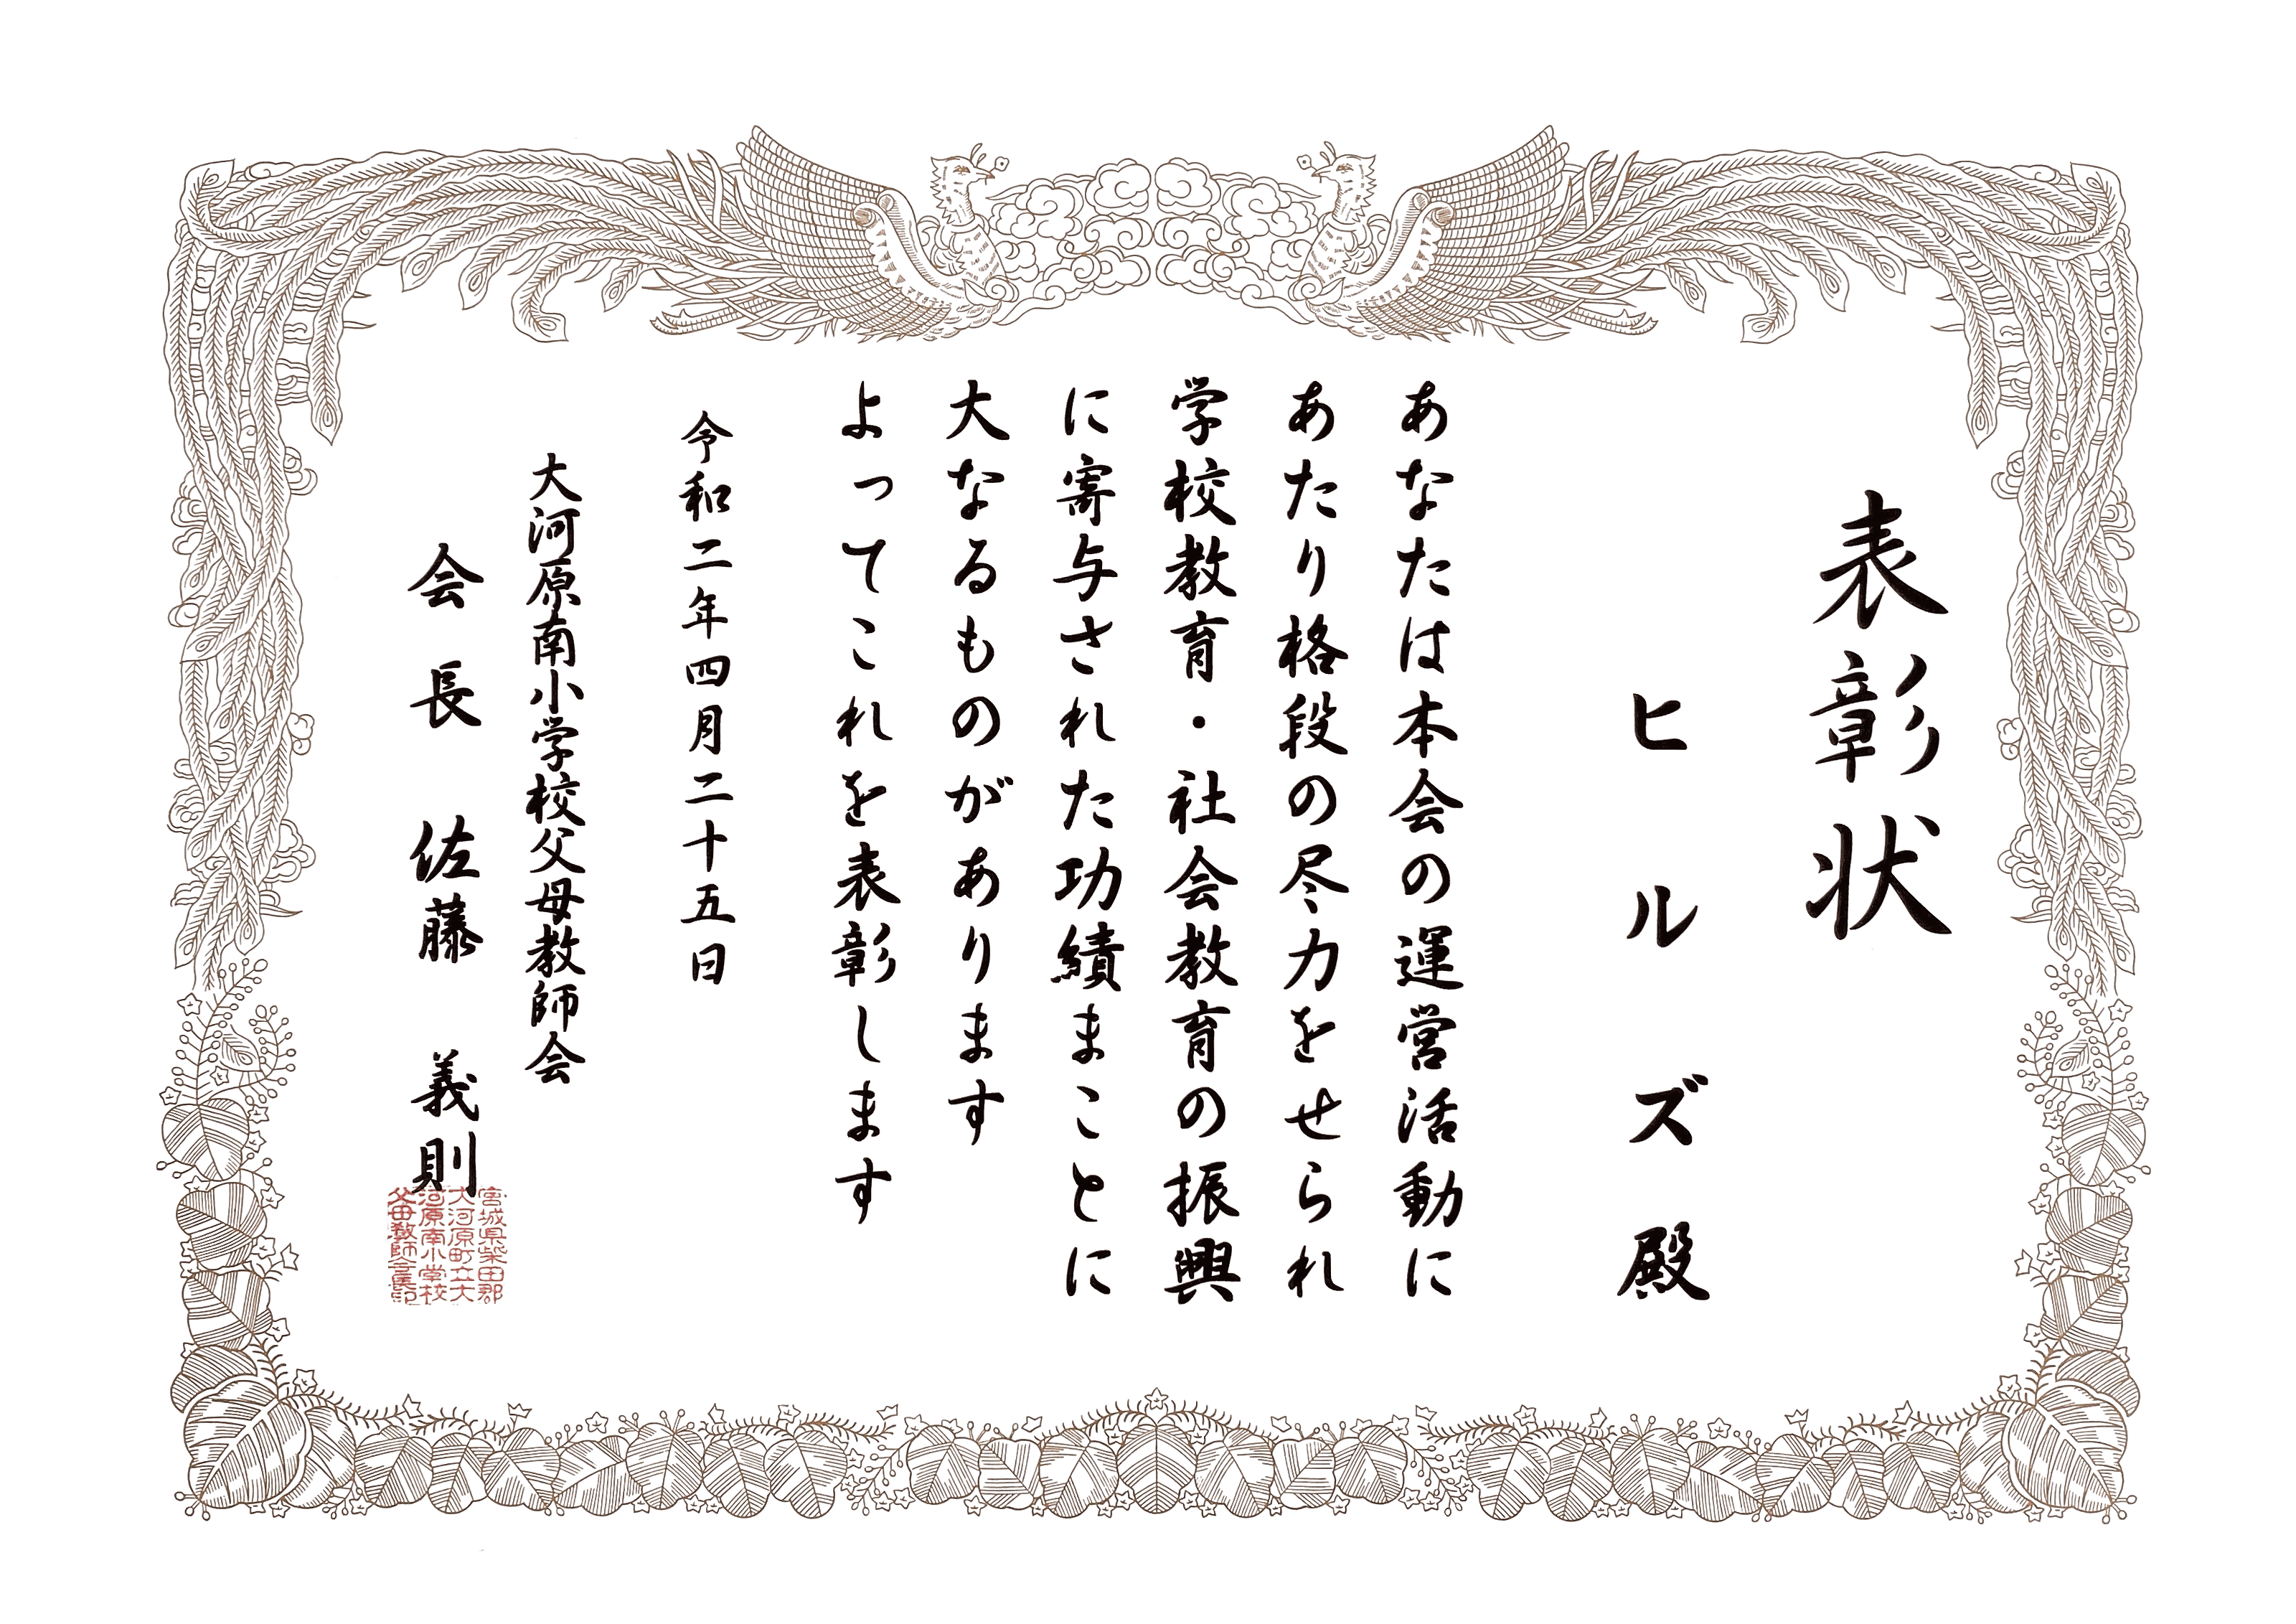 表彰状
ヒルズ殿
あなたは本会の運営活動に
あたり格段の尽力をせられ
学校教育・社会教育の振興
に寄与された功績まことに
大なるものがあります
よってこれを表彰します
令和二年四月二十五日
大河原南小学校父母教師会
会長 佐藤 義則
宮城県柴田郡
大河原町立大
河原南小学校
父母教師会長印